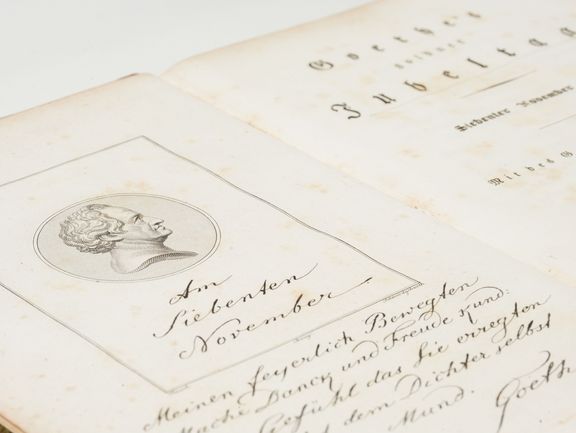 Am
Siebenten
November
Meinen feyerlich Bewegten
Mache Danck und Freude kund:
Gefühl das Sie erregten
dem Dichter selbst
Mund.
Goethe
Goethe's
goldner
Jubeltag
Siebenter November
Mit des